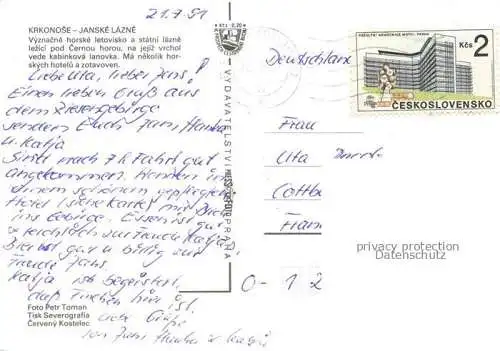 21.7.91
KRKONOŠE – JANSKÉ LÁZNĚ
Význačné horské letovisko a státní lázně
ležící pod Černou horou, na jejíž vrchol
vede kabinková lanovka. Má několik hor-
ských hotelů a zotavoven.
Liebe Uta, lieber Jens!
Einen lieben Gruß aus
dem Riesengebirge
senden Euch Jan,
u. Katja
Sind nach 7 h Fahrt gut
angekommen. in
einem schönen gepflegten
Hotel (siehe Karte) mit Blick
ins Gebirge. Essen ist gut
u. reichlich zur Freude Katja,
Bier ist gut u. billig zur
Freude Jans.
Katja ist begeistert,
daß hier ist.
Liebe Grüße
von Jan, u. Katja
Foto Petr Toman
Tisk Severografia
Červený Kostelec
VYDAVATELSTVÍ
PRAHA
Kčs 2
ČESKOSLOVENSKO
Deutschland
Frau
Uta
Cottbu
Fram
O-12
privacy protection
Datenschutz